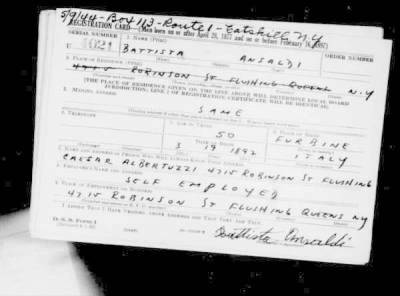 5/9/44 - Box 113 - Route 1 - Catskill, N.Y.
REGISTRATION CARD—(Men born on or after April 28, 1877 and on or before February 16, 1897)
SERIAL NUMBER
1. NAME (Print)
ORDER NUMBER
U
BATTISTA ANSALDI
2. PLACE OF RESIDENCE (Print)
4715 ROBINSON ST FLUSHING QUEENS N.Y
[THE PLACE OF RESIDENCE GIVEN ON THE LINE ABOVE WILL DETERMINE LOCAL BOARD
JURISDICTION; LINE 2 OF REGISTRATION CERTIFICATE WILL BE IDENTICAL]
3. MAILING ADDRESS
SAME
4. TELEPHONE
5. AGE IN YEARS
50
6. PLACE OF BIRTH
FURBINE
DATE OF BIRTH
3 19 1892
ITALY
7. NAME AND ADDRESS OF PERSON WHO WILL ALWAYS KNOW YOUR ADDRESS
CAESAR ALBERTUZZI 4715 ROBINSON ST FLUSHING
8. EMPLOYER'S NAME AND ADDRESS
SELF EMPLOYED
9. PLACE OF EMPLOYMENT OR BUSINESS
4715 ROBINSON ST FLUSHING QUEENS NY
I AFFIRM THAT I HAVE VERIFIED ABOVE ANSWERS AND THAT THEY ARE TRUE.
D. S. S. Form 1
Battista Ansaldi